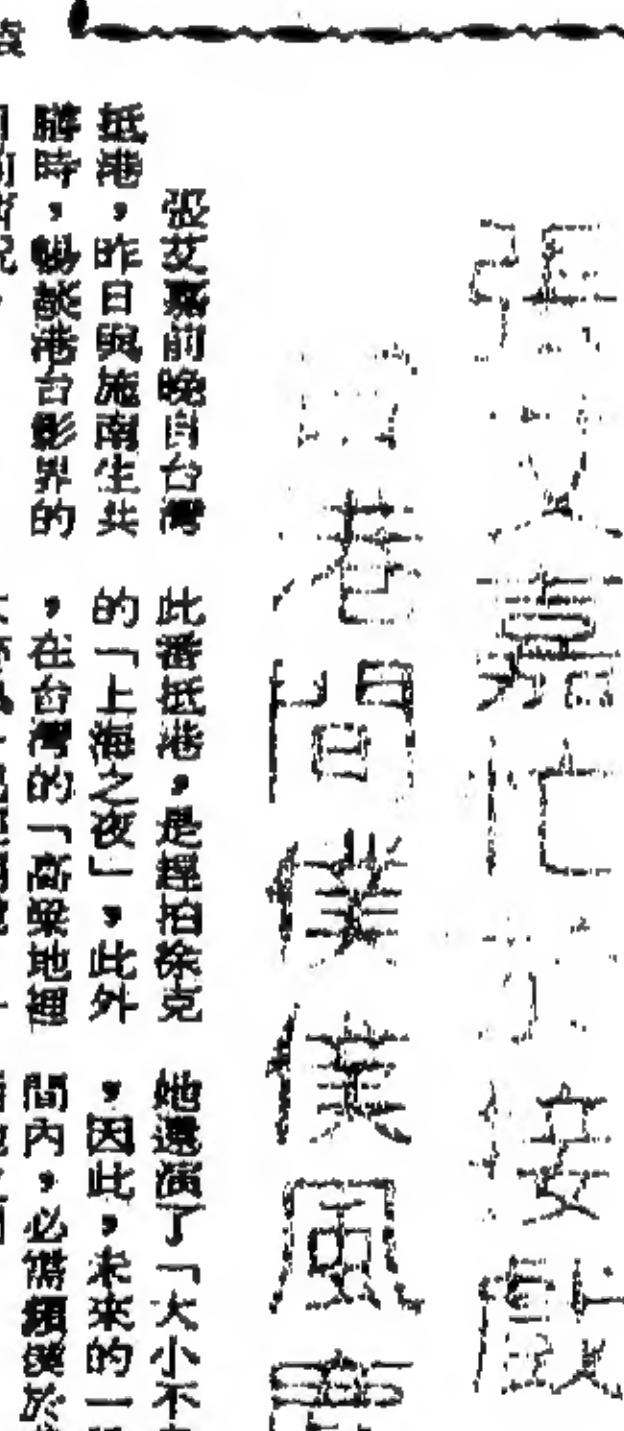 張艾嘉忙於接戲
台港間僕僕風
張艾嘉前晚自台灣
抵港，昨日與施南生共
膳時，暢談港台影界的
此番抵港，是趕拍徐克
的「上海之夜」，此外
，在台灣的「高粱地裡
她還演了「大小不
，因此，未來的一
間內，必需頻撲於